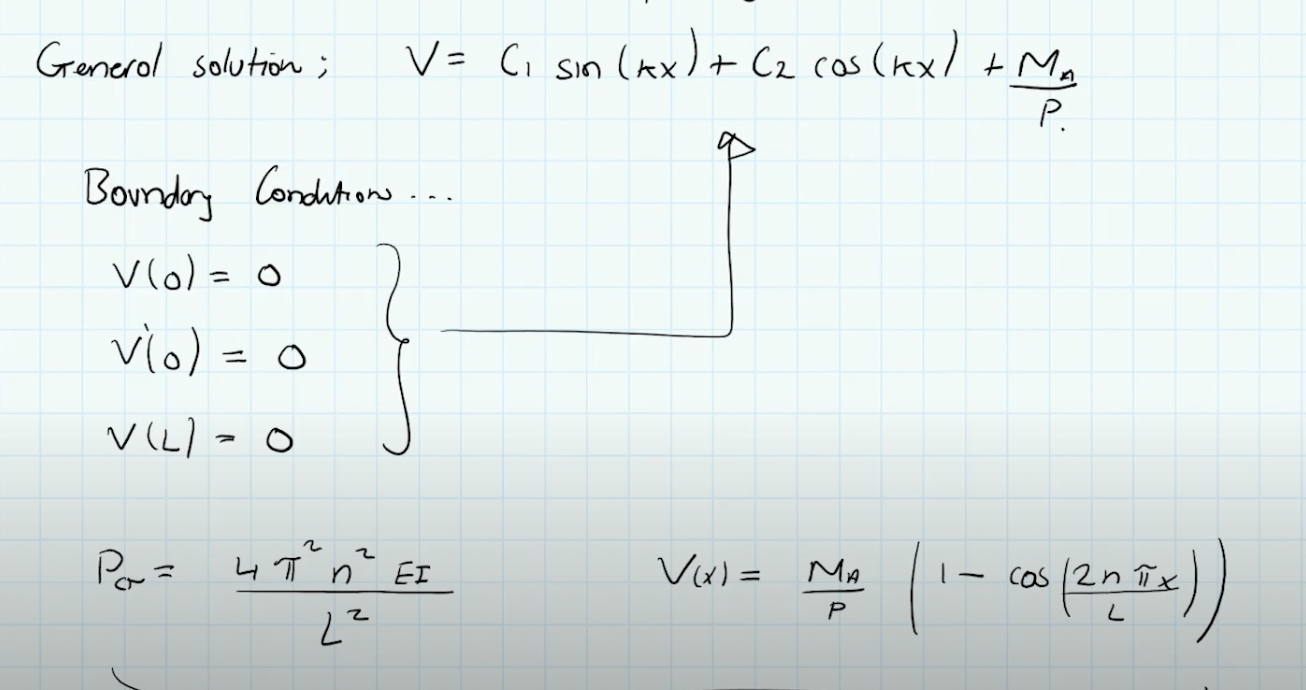 General solution; V = C1 sin (kx) + C2 cos (kx) + MA/P.
Boundary Conditions ...
V(0) = 0
V'(0) = 0
V(L) = 0
Pcr = 4π²n²EI/L² V(x) = MA/P (1 - cos(2nπx/L))